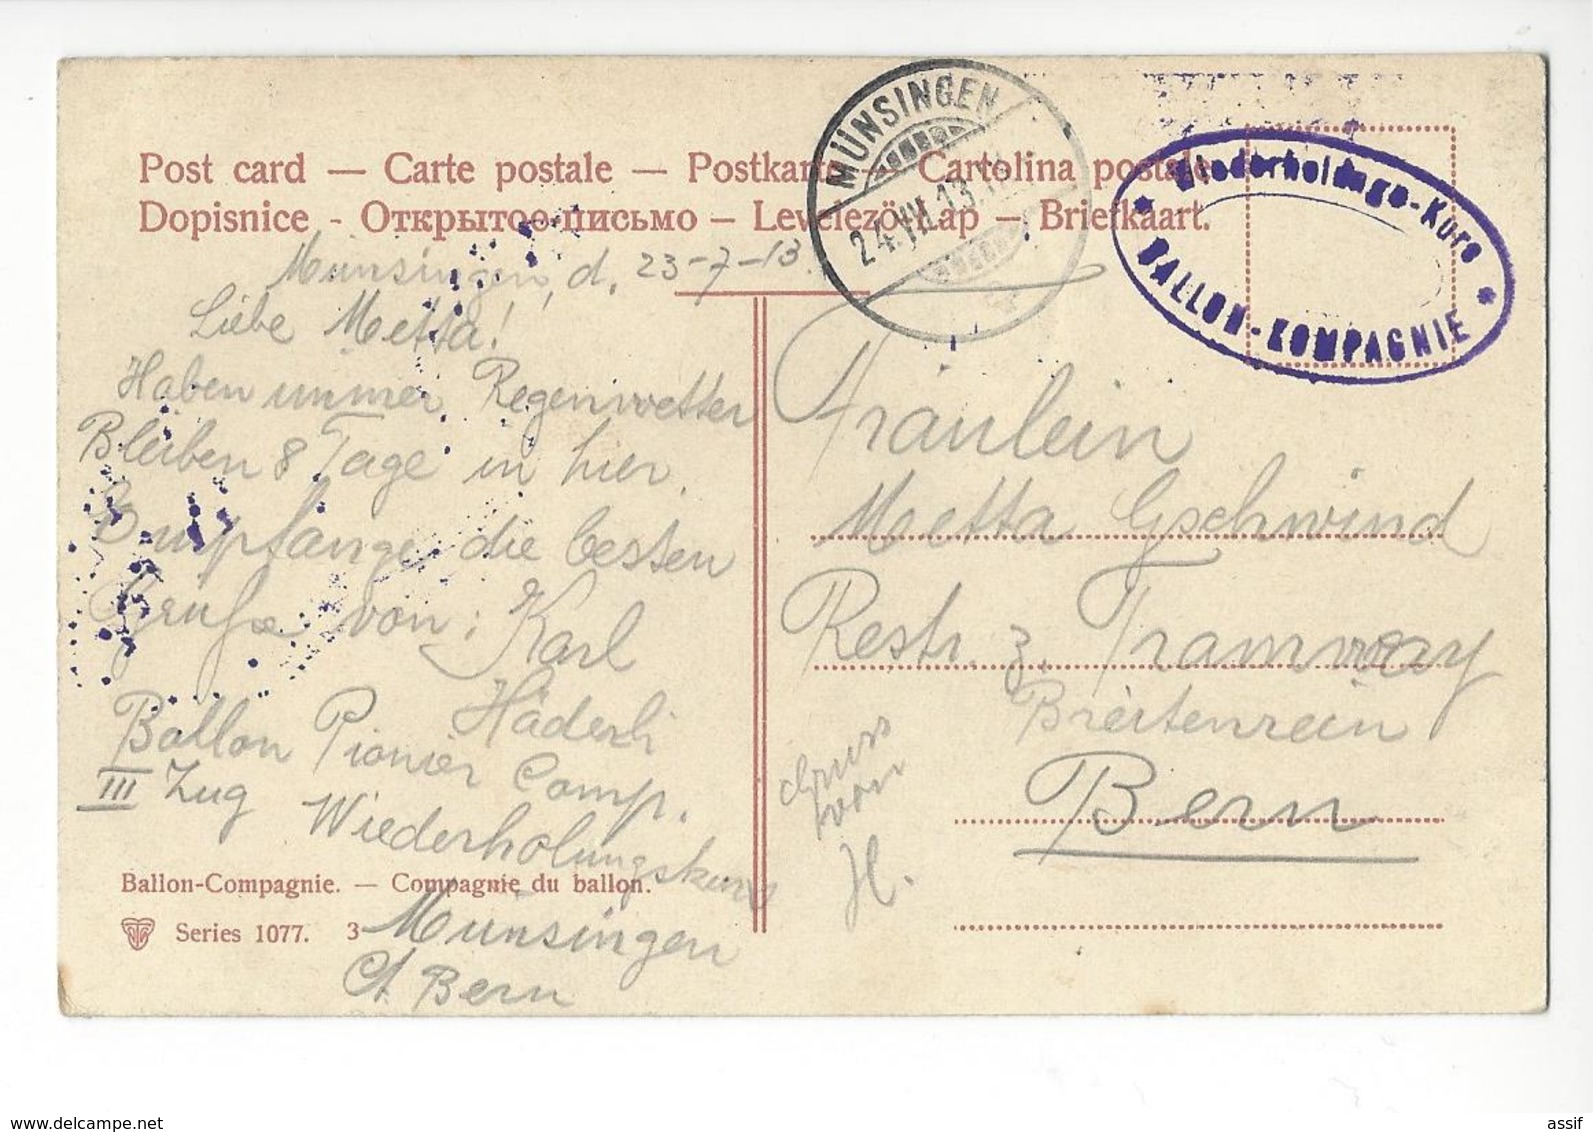 Post card — Carte postale — Postkarte — Cartolina postale
Dopisnice - Открытое письмо — Levelezö-Lap — Briefkaart.
MÜNSINGEN
24.VII.13.
* Wiederholungs-Kurs *
BALLON-KOMPAGNIE
Münsingen, d. 23-7-13.
Liebe Metta!
Haben immer Regenwetter
Bleiben 8 Tage in hier.
Empfange die besten
Grüße von: Karl
Häderli
Ballon Pionier Comp.
III Zug Wiederholungskurs
Münsingen
Ct Bern
Fräulein
Metta Gschwind
Restr. z. Tramway
Breitenrein
Bern
Gruss
von
H.
Ballon-Compagnie. — Compagnie du ballon.
Series 1077. 3
www.delcampe.net
assif